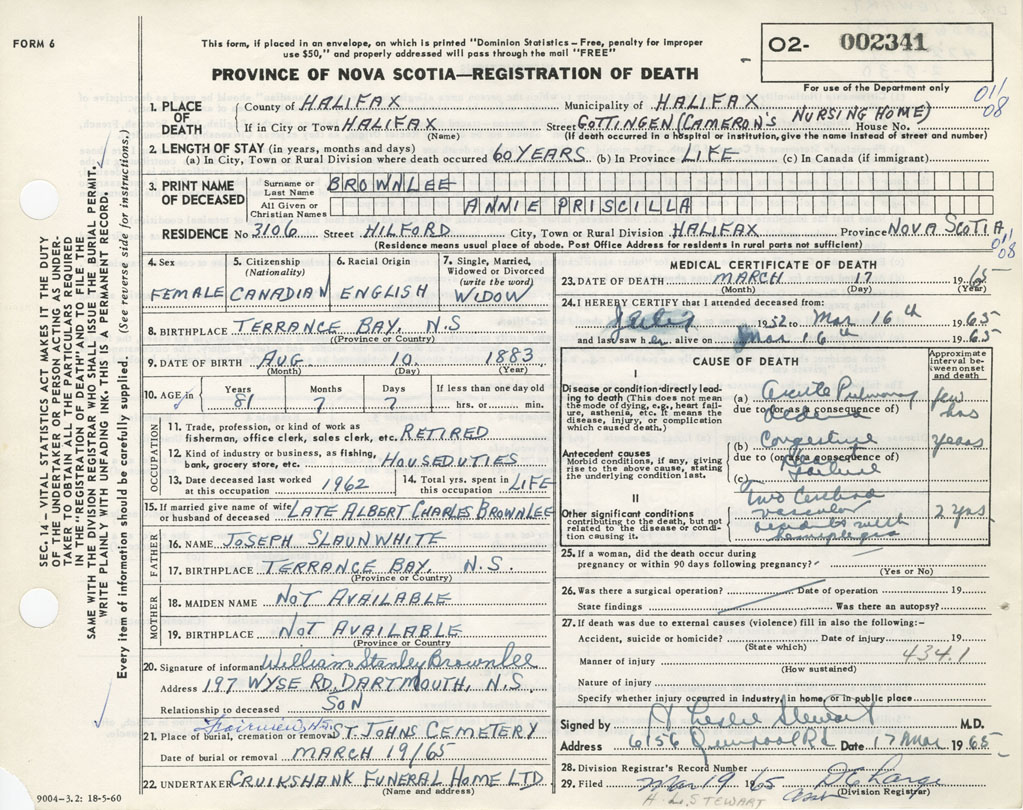 FORM 6
This form, if placed in an envelope, on which is printed "Dominion Statistics – Free, penalty for improper
use $50," and properly addressed will pass through the mail "FREE"
O2- 002341
PROVINCE OF NOVA SCOTIA—REGISTRATION OF DEATH
For use of the Department only
011/08
1. PLACE OF DEATH
County of HALIFAX Municipality of HALIFAX
If in City or Town HALIFAX (Name) Street GOTTINGEN (CAMERON'S NURSING HOME) House No.
(If death occurred in a hospital or institution, give the name instead of street and number)
2. LENGTH OF STAY (in years, months and days)
(a) In City, Town or Rural Division where death occurred 60 YEARS (b) In Province LIFE (c) In Canada (if immigrant)
3. PRINT NAME OF DECEASED
Surname or Last Name BROWNLEE
All Given or Christian Names ANNIE PRISCILLA
RESIDENCE No 3106 Street HILFORD City, Town or Rural Division HALIFAX Province NOVA SCOTIA
(Residence means usual place of abode. Post Office Address for residents in rural parts not sufficient)
011/08
4. Sex FEMALE
5. Citizenship (Nationality) CANADIAN
6. Racial Origin ENGLISH
7. Single, Married, Widowed or Divorced (write the word) WIDOW
8. BIRTHPLACE TERRANCE BAY, N.S
(Province or Country)
9. DATE OF BIRTH AUG. 10 1883
(Month) (Day) (Year)
10. AGE in Years 81 Months 7 Days 7 If less than one day old hrs. or min.
OCCUPATION
11. Trade, profession, or kind of work as
fisherman, office clerk, sales clerk, etc. RETIRED
12. Kind of industry or business, as fishing,
bank, grocery store, etc. HOUSEDUTIES
13. Date deceased last worked at this occupation 1962
14. Total yrs. spent in this occupation LIFE
15. If married give name of wife or husband of deceased LATE ALBERT CHARLES BROWNLEE
FATHER
16. NAME JOSEPH SLAUNWHITE
17. BIRTHPLACE TERRANCE BAY, N.S.
(Province or Country)
MOTHER
18. MAIDEN NAME NOT AVAILABLE
19. BIRTHPLACE NOT AVAILABLE
(Province or Country)
20. Signature of informant William Stanley Brownlee
Address 197 WYSE RD, DARTMOUTH, N.S.
Relationship to deceased SON
21. Place of burial, cremation or removal Fairview, HFX ST. JOHNS CEMETERY
Date of burial or removal MARCH 19/65
22. UNDERTAKER CRUIKSHANK FUNERAL HOME LTD.
(Name and address)
9004-3.2: 18-5-60
MEDICAL CERTIFICATE OF DEATH
23. DATE OF DEATH MARCH 17 1965
(Month) (Day) (Year)
24. I HEREBY CERTIFY that I attended deceased from:
1952 to Mar 16th 1965
and last saw her alive on Mar 16th 1965
CAUSE OF DEATH
Approximate interval between onset and death
I
Disease or condition directly leading to death (This does not mean the mode of dying, e.g., heart failure, asthenia, etc. It means the disease, injury, or complication which caused death.)
(a) Acute Pulmonary Oedema few hrs
due to (or as a consequence of)
Antecedent causes
Morbid conditions, if any, giving rise to the above cause, stating the underlying condition last.
(b) Congestive Heart Failure years
due to (or as a consequence of)
(c)
II
Other significant conditions
contributing to the death, but not related to the disease or condition causing it.
Two Cerebro vascular accidents with hemiplegia 2 yrs
25. If a woman, did the death occur during
pregnancy or within 90 days following pregnancy?
(Yes or No)
26. Was there a surgical operation? Date of operation 19
State findings Was there an autopsy?
27. If death was due to external causes (violence) fill in also the following:–
Accident, suicide or homicide? Date of injury 19
(State which)
434.1
Manner of injury
(How sustained)
Nature of injury
Specify whether injury occurred in industry, in home, or in public place
Signed by H Leslie Stewart M.D.
Address 6156 Quinpool Rd Date 17 Mar 1965
28. Division Registrar's Record Number
29. Filed Mar 19 1965
(Division Registrar)
H. L. STEWART
SEC. 14 – VITAL STATISTICS ACT MAKES IT THE DUTY
OF THE UNDERTAKER OR PERSON ACTING AS UNDER-
TAKER TO OBTAIN ALL THE PARTICULARS REQUIRED
IN THE "REGISTRATION OF DEATH" AND TO FILE THE
SAME WITH THE DIVISION REGISTRAR WHO SHALL ISSUE THE BURIAL PERMIT.
WRITE PLAINLY WITH UNFADING INK. THIS IS A PERMANENT RECORD.
Every item of information should be carefully supplied. (See reverse side for instructions.)